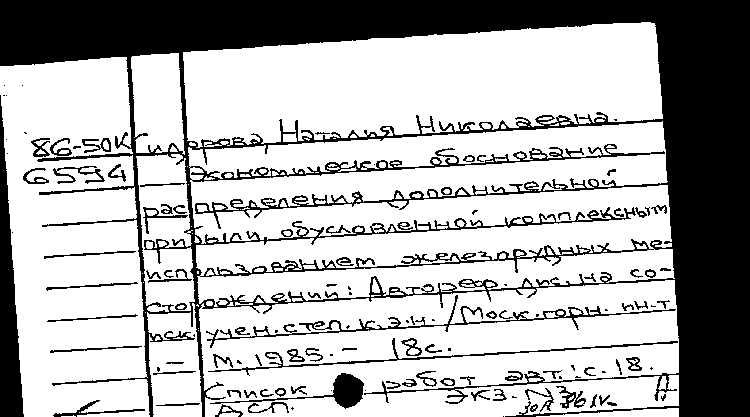 86-50К Сидорова, Наталия Николаевна.
6594 Экономическое обоснование
распределения дополнительной
прибыли, обусловленной комплексным
использованием железорудных ме-
сторождений: Автореф. дис. на со-
иск. учен. степ. к.э.н. / Моск. горн. ин-т
. – М., 1985. – 18 с.
Список работ авт.: с. 18.
ДСП. ЭКЗ. N
А